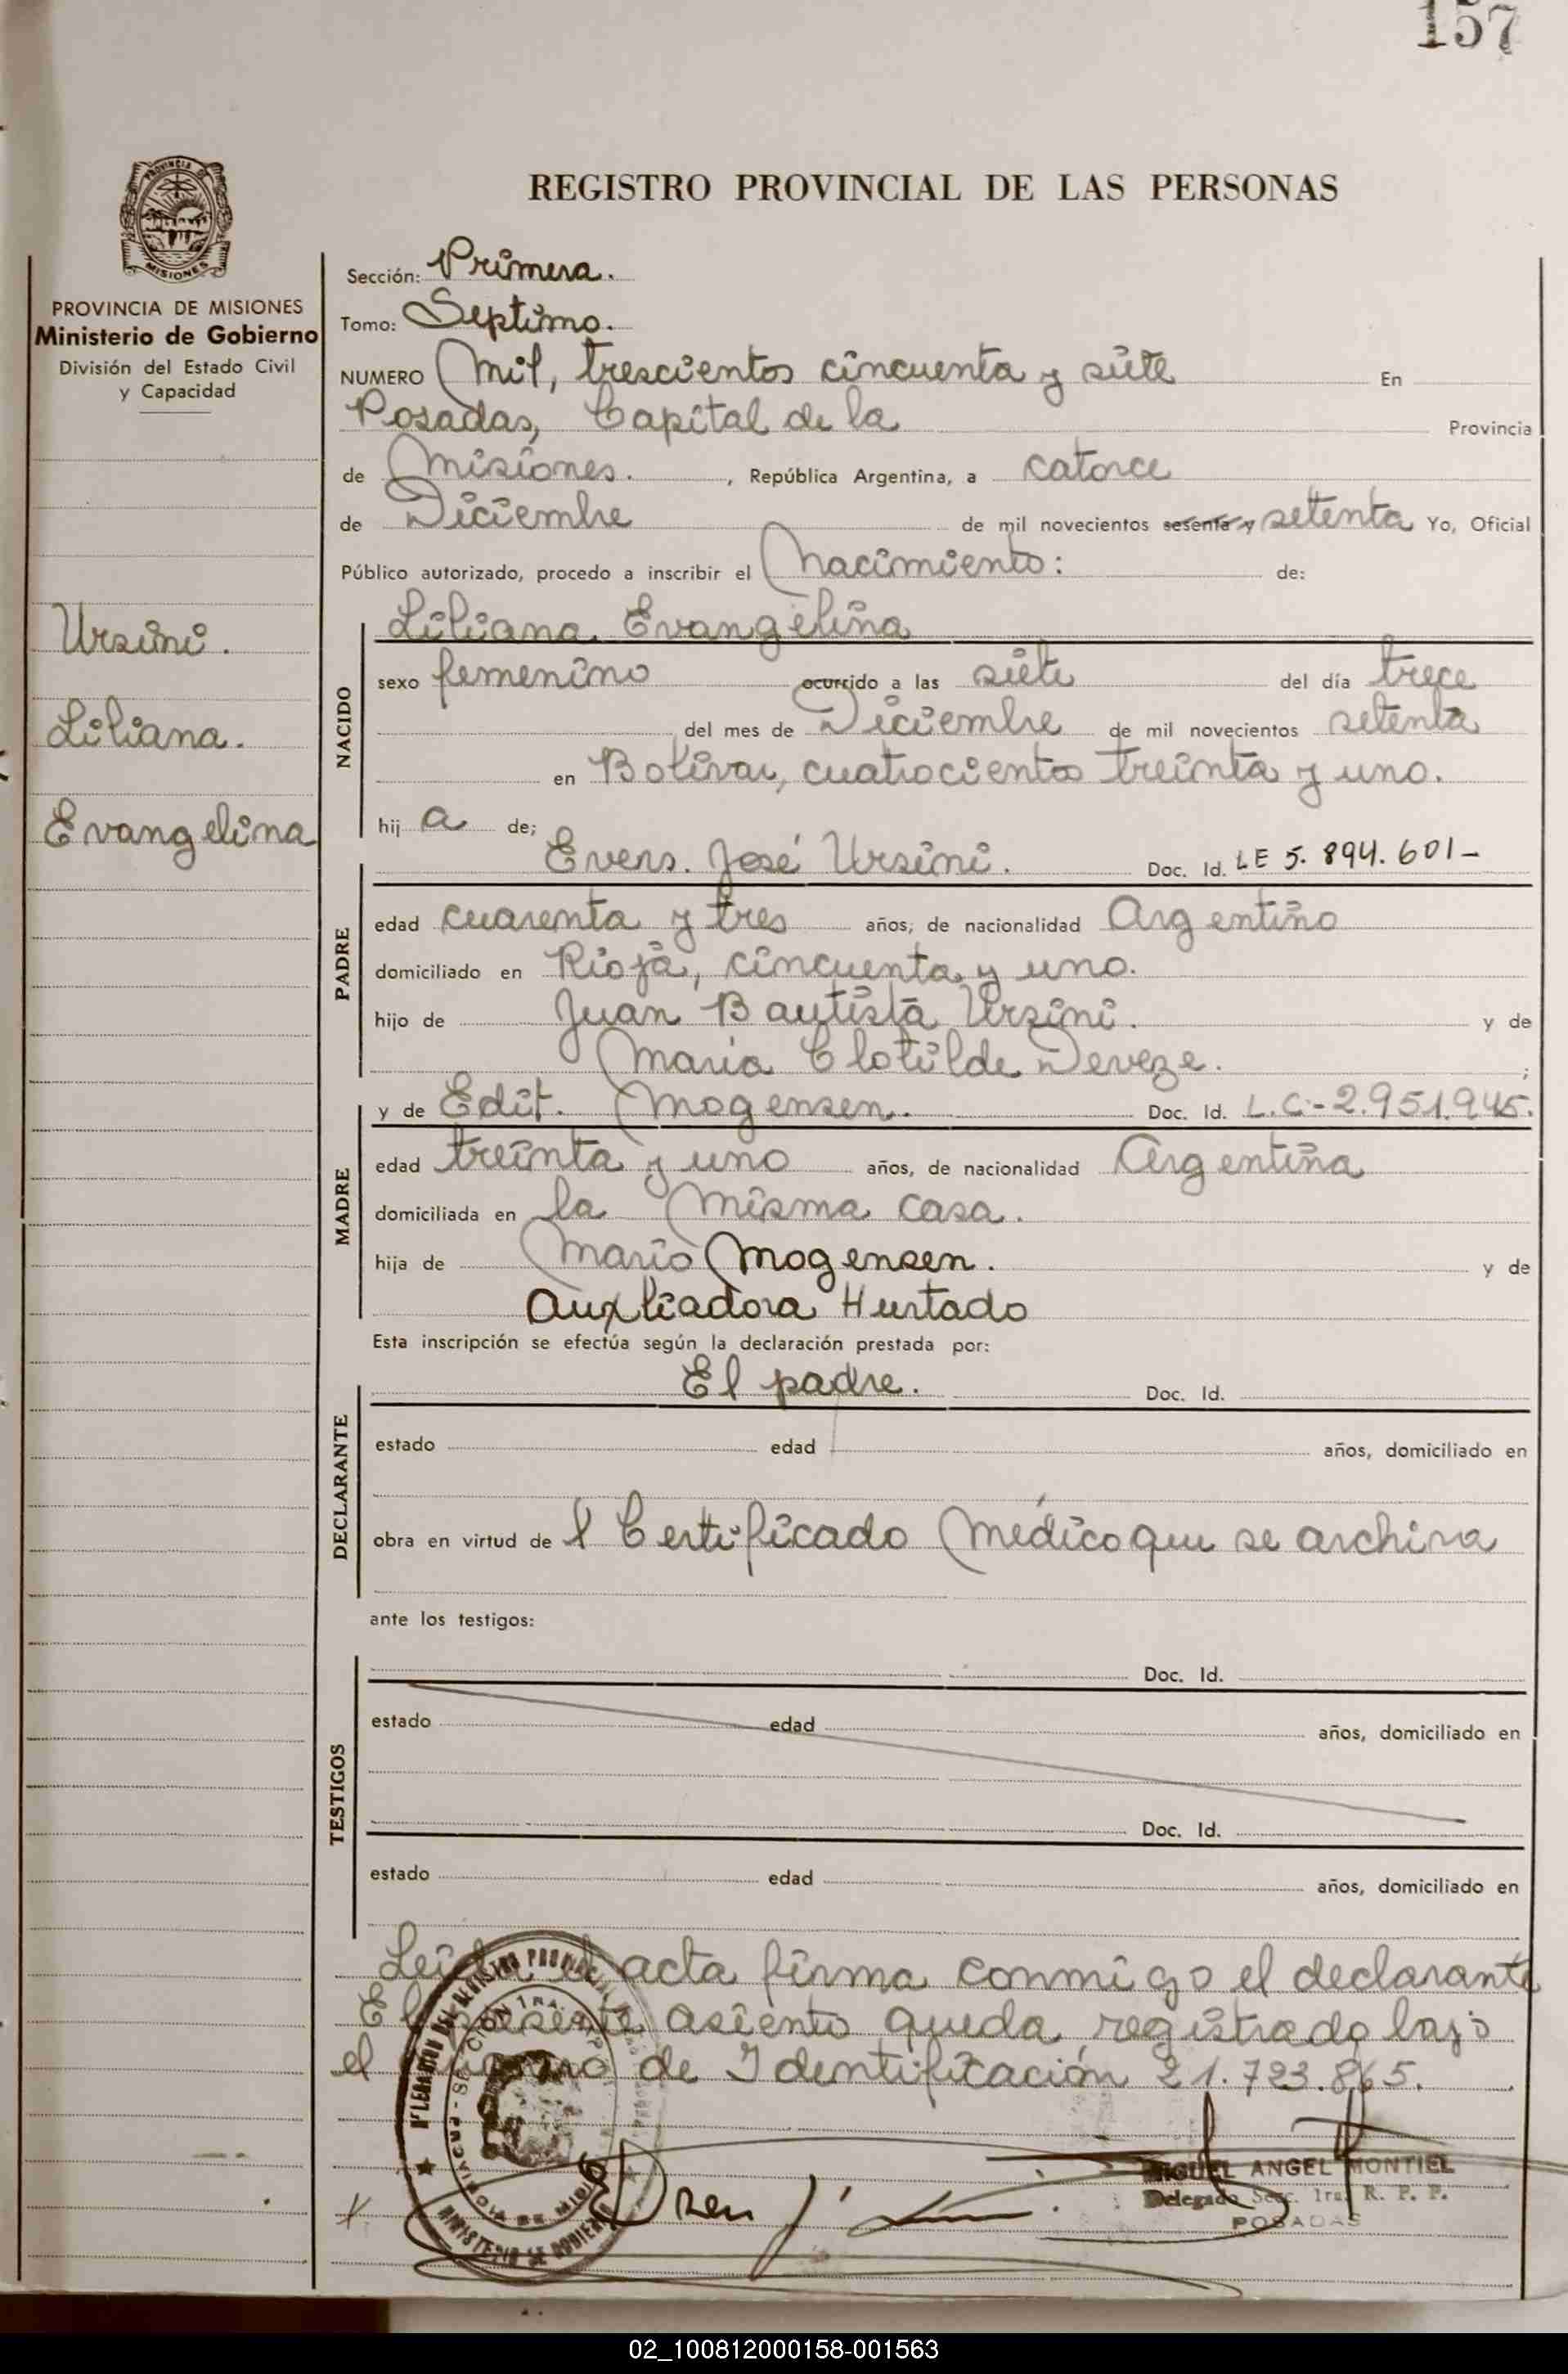 157
PROVINCIA DE
MISIONES
REGISTRO PROVINCIAL DE LAS PERSONAS
PROVINCIA DE MISIONES
Ministerio de Gobierno
División del Estado Civil
y Capacidad
Ursini.
Liliana.
Evangelina
Sección: Primera.
Tomo: Septimo.
NUMERO Mil, trescientos cincuenta y siete En
Posadas, Capital de la Provincia
de Misiones. , República Argentina, a catorce
de Diciembre de mil novecientos sesenta y setenta Yo, Oficial
Público autorizado, procedo a inscribir el Nacimiento: de:
NACIDO
Liliana Evangelina
sexo femenino ocurrido a las siete del día trece
del mes de Diciembre de mil novecientos setenta
en Bolivar, cuatrocientos treinta y uno.
hij a de;
PADRE
Evers. José Ursini. Doc. Id. LE 5.894.601-
edad cuarenta y tres años, de nacionalidad Argentino
domiciliado en Rioja, cincuenta y uno.
hijo de Juan Bautista Ursini. y de
Maria Clotilde Deveze. ;
MADRE
y de Edit. Mogensen. Doc. Id. L.C.-2.951.945.
edad treinta y uno años, de nacionalidad Argentina
domiciliada en la Misma casa.
hija de Mario Mogensen. y de
Auxliadora Hurtado
Esta inscripción se efectúa según la declaración prestada por:
DECLARANTE
El padre. Doc. Id.
estado edad años, domiciliado en
obra en virtud de l Certificado Médico que se archiva
ante los testigos:
TESTIGOS
Doc. Id.
estado edad años, domiciliado en
Doc. Id.
estado edad años, domiciliado en
Leida el acta firma conmigo el declarante
El presente asiento queda registrado bajo
el numero de Identificación 21.723.865.
MIGUEL ANGEL MONTIEL
Delegado Secc. 1ra. R. P. P.
POSADAS
02_100812000158-001563